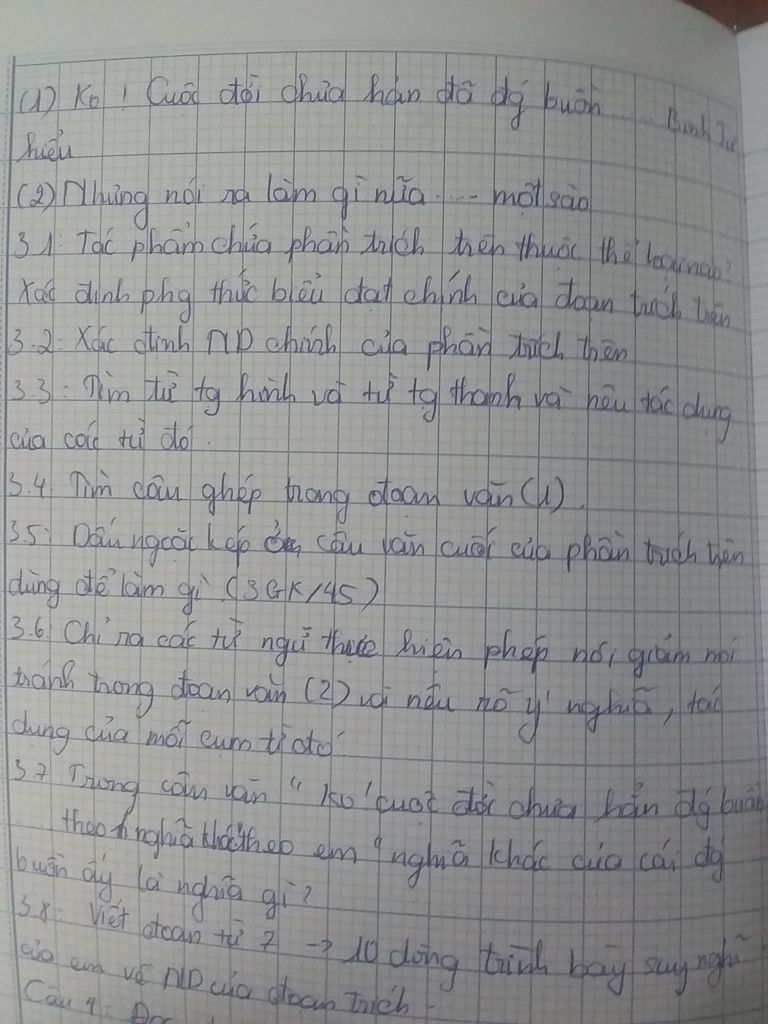 (1) Ko! Cuộc đời chưa hẳn đã đg buồn .... Binh Tư
hiểu
(2) Nhưng nói ra làm gì nữa .... một sào
3.1: Tác phẩm chứa phần trích trên thuộc thể loại nào?
Xác định phg thức biểu đạt chính của đoạn trích trên
3.2: Xác định ND chính của phần trích trên
3.3: Tìm từ tg hình và từ tg thanh và nêu tác dụng
của các từ đó.
3.4. Tìm câu ghép trong đoạn văn (1).
3.5: Dấu ngoặc kép câu văn cuối của phần trích trên
dùng để làm gì (SGK/45)
3.6: Chỉ ra các từ ngữ thực hiện phép nói giảm nói
tránh trong đoạn văn (2) và nêu rõ ý nghĩa, tác
dụng của mỗi cụm từ đó
3.7 Trong câu văn "Ko! cuộc đời chưa hẳn đg buồn
theo 1 nghĩa khác" theo em "nghĩa khác của cái đg
buồn ấy là nghĩa gì?
3.8: Viết đoạn từ 7 → 10 dòng trình bày suy nghĩ
của em về ND của đoạn trích.
Câu 4: Đọc